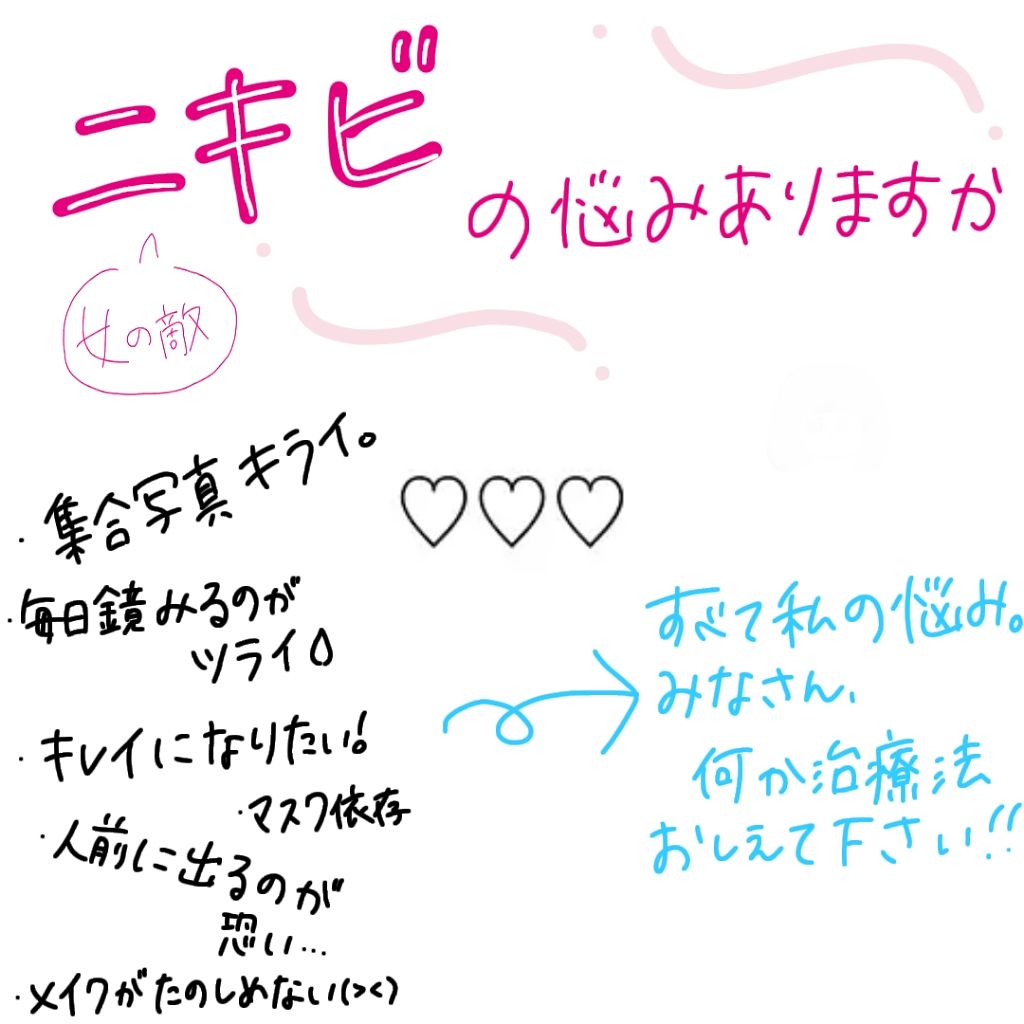 ニキビ
の悩みありますか
女の敵
・集合写真キライ。
♡♡♡
・毎日鏡みるのが
ツライ
・キレイになりたい!
・マスク依存
・人前に出るのが
恐い…
・メイクがたのしめない(><)
すべて私の悩み。
みなさん、
何か治療法
おしえて下さい!!